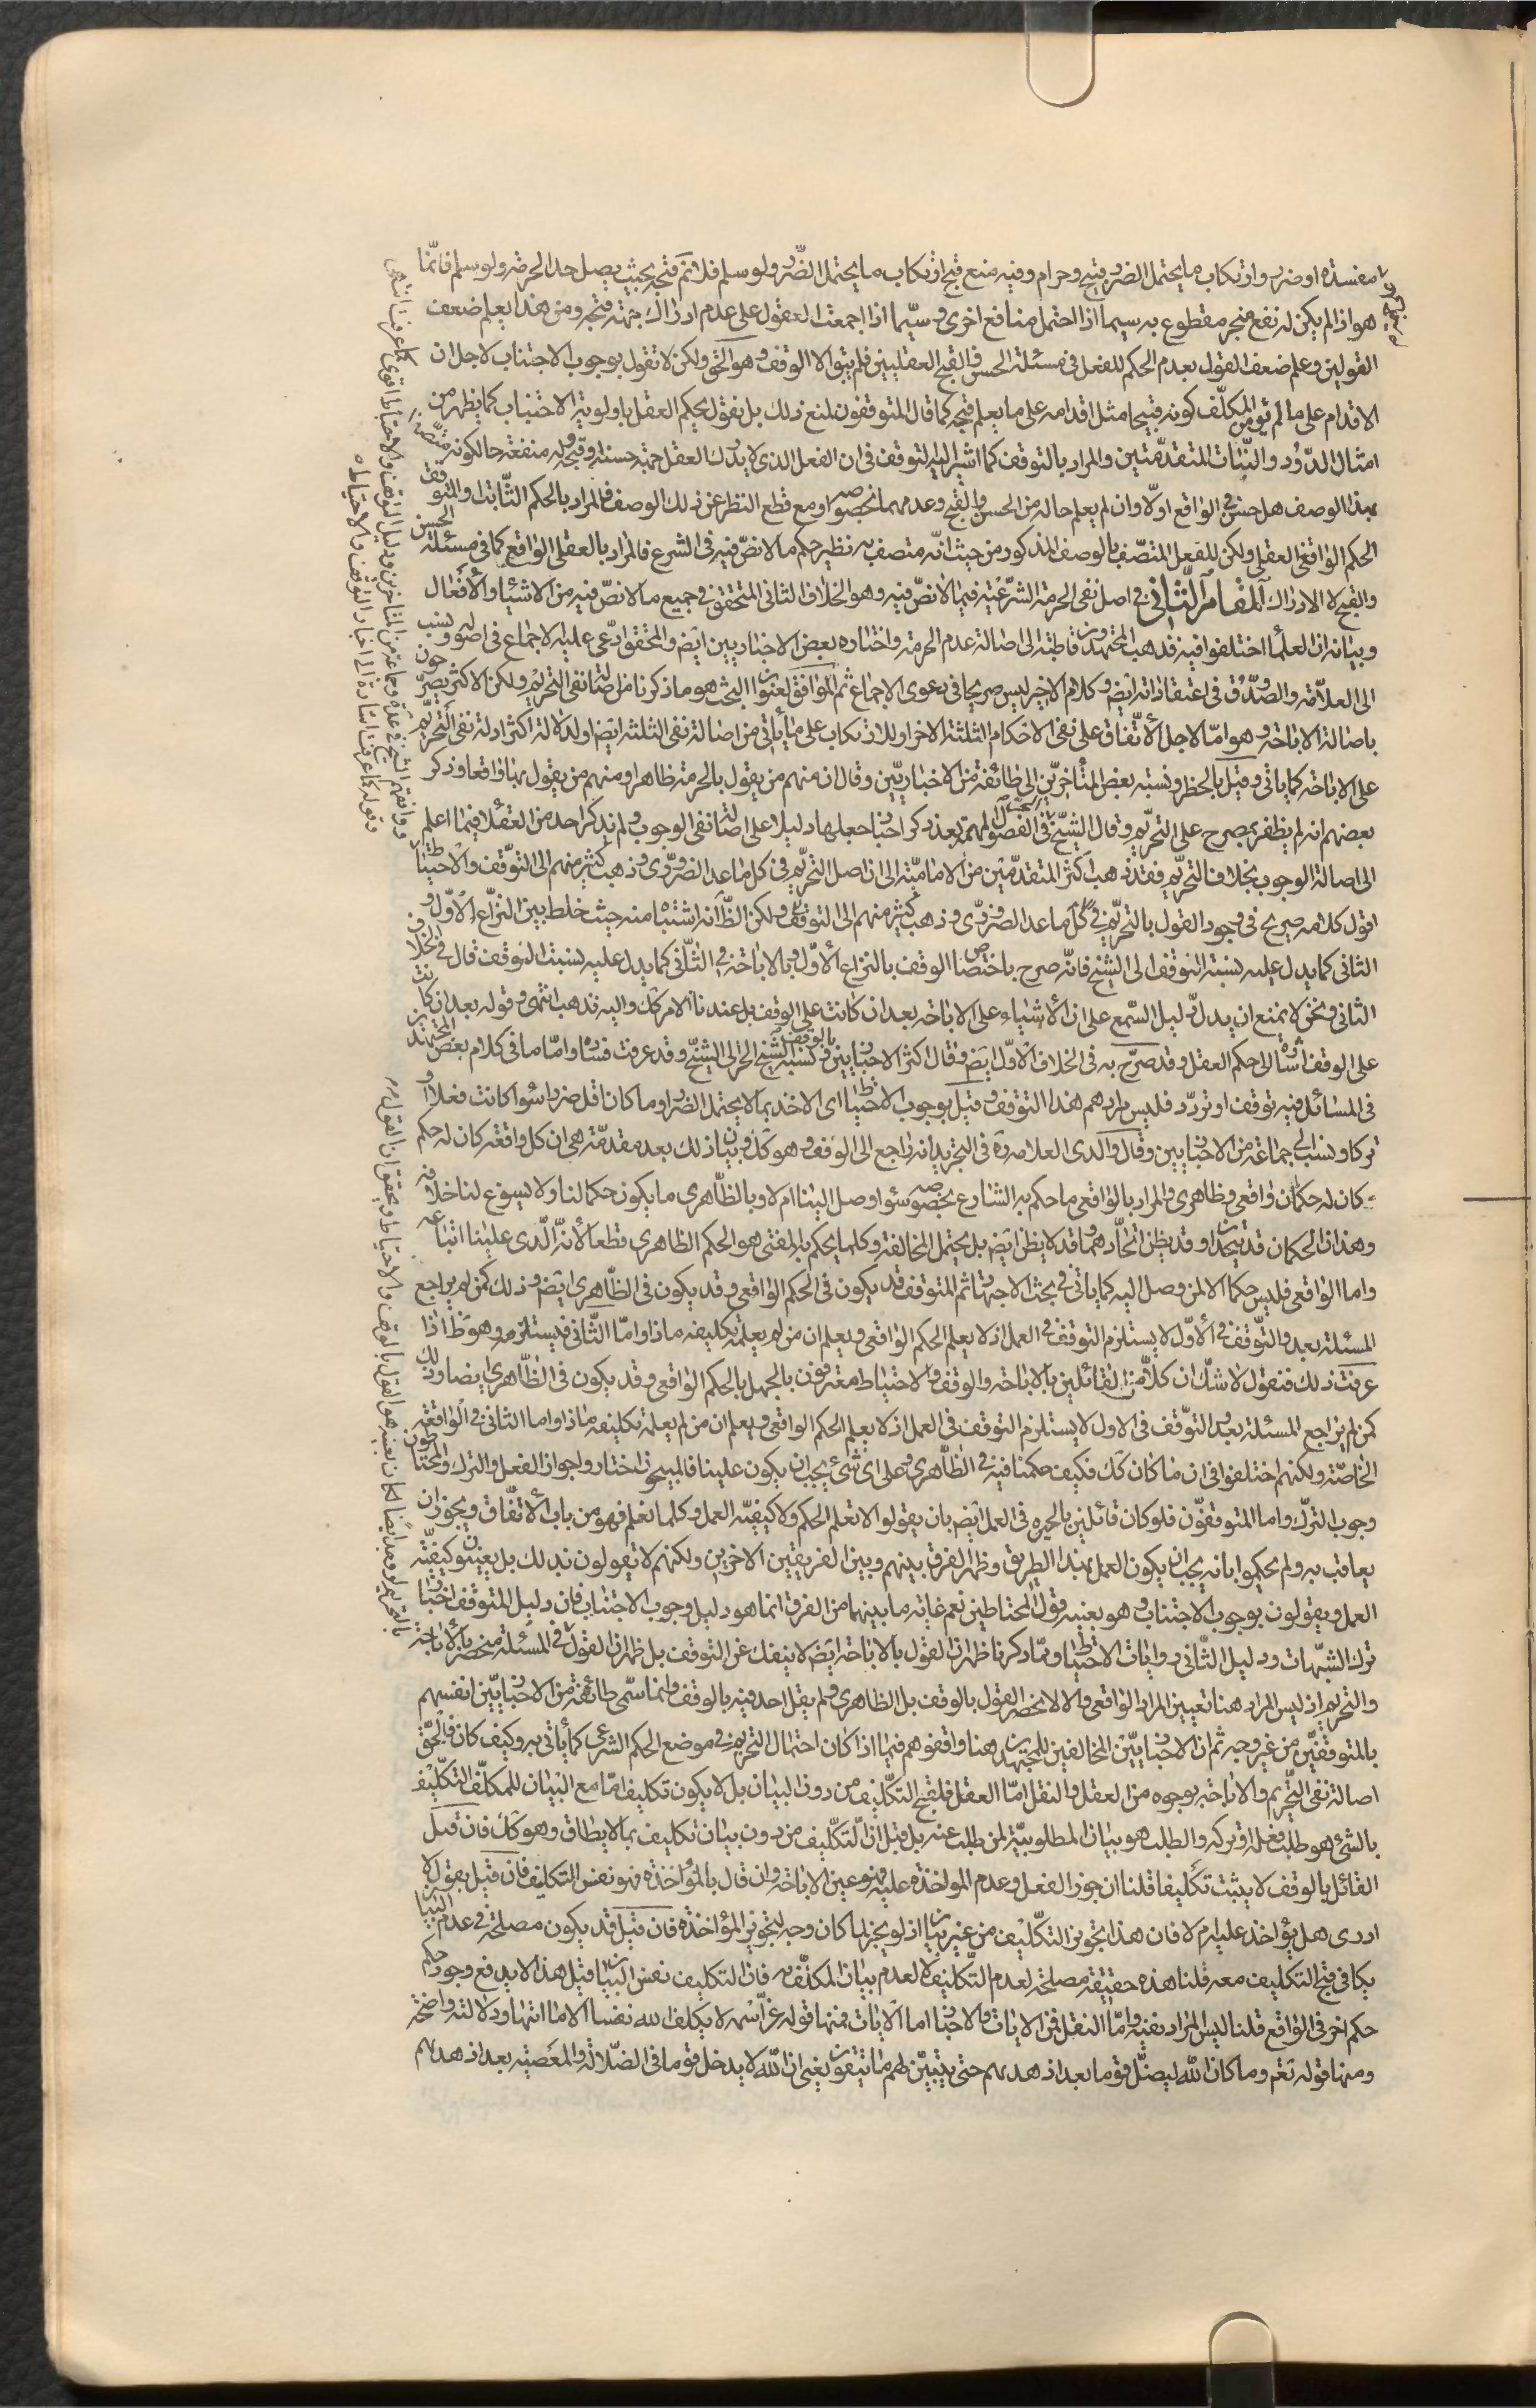 مفسدة او ضرر وارتكاب ما يحتمل الضرر قبيح وحرام وفيه منع قبح ارتكاب ما يحتمل الضرر ولو سلم فلا نم قبحه بحيث يصل حد الحرمة ولو سلم فانما
هو اذا لم يكن له نفع منجبر مقطوع به سيما اذا احتمل منافع اخرى وسيّما اذا اجمعت العقول على عدم ادراك جهة قبحه ومن هذا يعلم ضعف
القولين وعلم ضعف القول بعدم الحكم للفعل في مسئلة الحسن والقبح العقليين فلم يبق الا الوقف وهو الحق ولكن لا نقول بوجوب الاجتناب لاجل ان
الاقدام على ما لم يؤمن المكلّف كونه قبيحا مثل اقدامه على ما يعلم قبحه كما قال المتوقفون لمنع ذلك بل نقول بحكم العقل باولوية الاجتناب كما يظهر من
امثال الدّود والنّبات المتقدمتين والمراد بالتوقف كما اشير اليه التوقف في ان الفعل الذى لا يدرك العقل جهة حسنه وقبحه وله منفعة حالكونه متّصفا
بهذا الوصف هل حسن في الواقع اولا وان لم يعلم حاله من الحسن والقبح وعدمهما بخصوصه او مع قطع النظر عن ذلك الوصف فالمراد بالحكم الثابت او المتوقف
الحكم الواقعى العقلى ولكن للفعل المتصّف بالوصف المذكور من حيث انّه متصف به نظير حكم ما لا نصّ فيه في الشرع فالمراد بالعقلى الواقع كما في مسئلة الحسن
والقبح لا الادراك المقام الثّاني في اصل نفى الحرمة الشّرعيّة فيما لا نصّ فيه وهو الخلاف الثانى المتحقق في جميع ما لا نصّ فيه من الاشياء والأفعال
وبيانه ان العلمأ اختلفوا فيه فذهب المجتهدون قاطبة الى اصالة عدم الحرمة واختاره بعض الاخباريين ايض والمحقق ادّعى عليه الاجماع في اصوله ونسب
الى العلامّة والصّدُوق في اعتقاداته ايض وكلام الاخير ليس صريحا في دعوى الاجماع ثم الموافق لعنوان البحث هو ما ذكرنا من اصالة نفى التحريم ولكن الاكثر يصرّحون
باصالة الاباحة وهو امّا لاجل الأتّفاق على نفى الاحكام الثلثة الاخر او للارتكاب على ما يأتى من اصالة نفى الثلثة ايضا او لدلالة اكثر ادلة نفى التّحريم
على الاباحة كما ياتى وقيل بالحظر ونسبه بعض المتأخرّين الى طائفة من الاخباريّين وقال ان منهم من يقول بالحرمة ظاهرا ومنهم من يقول بها واقعا وذكر
بعضهم انه لم يظفر بمصرح على التحريم وقال الشيخ الحر في الفصول المهمة بعد ذكر اخبار جعلها دليلا على اصالة نفى الوجوب ولم يذكر احد من العقلاء فيما اعلم
الى اصالة الوجوب بخلاف التحريم فقد ذهب اكثر المتقدمّين من الاماميّة الى ان اصل التحريم في كل ما عدا الضرورّى وذهب كثير منهم الى التوقّف والاحتياط
اقول كلامه صريح في وجود القول بالتحريم في كل ما عدا الضرورّى وذهب كثير منهم الى التوقف ولكن الظّ انه اشتباه منه حيث خلط بين النزاع الاول و
الثانى كما يدل عليه نسبته التوقف الى الشيخ فانّه صرح باختصاص الوقف بالنزاع الأوّل وبالاباحة في الثّانى كما يدل عليه نسبة التوقف قال في الخلاف
الثانى ونحن لا نمنع ان يدل دليل السّمع على ان الأشياء على الاباحة بعد ان كانت على الوقف بل عندنا الامر كك واليه نذهب انتهى وقوله بعد ان كانت
على الوقف اشارة الى حكم العقل وقد صرّح به في الخلاف الأوّل ايض وقال اكثر الاخباريين بالوقف ونسبه الشيخ الحر الى الشيخ وقد عرفت فساده وامّا ما في كلام بعض المجتهدين
في المسائل فيه توقف او تردّد فليس مرادهم هذا التوقف وقيل بوجوب الاحتياط اى الاخذ بما لا يحتمل الضرر او ما كان اقل ضررا سواء كانت فعلا او
تركا ونسب الى جماعة من الاخباريين وقال والدى العلامة ره في التجريد انه راجع الى الوقف وهو كك وبيان ذلك بعد مقدمّة هى ان كل واقعة كان له حكم
كان له حكمان واقعى وظاهرى والمراد بالواقعى ما حكم به الشارع بخصوصه سواء وصل الينا ام لا وبالظّاهرى ما يكون حكما لنا ولا يسوغ لنا خلافه
وهذان الحكمان قد يتحدان وقد يظن اتحادهما وقد لا يظن ايض بل يحتمل المخالفة وكلما يحكم به المفتى هو الحكم الظاهرى قطعا لأنّه الّذى علينا اتباعه
واما الواقعى فليس حكما الا لمن وصل اليه كما ياتى في بحث الاجتهاد ثم المتوقف قد يكون في الحكم الواقعى وقد يكون في الظّاهرى ايض وذلك كمن لم يراجع
المسئلة بعد والتّوقف في الأوّل لا يستلزم التوقف في العمل اذ لا يعلم الحكم الواقعى ويعلم ان من لم يعلمه تكليفه ماذا وامّا الثّانى فيستلزمه وهو ظ اذا
عرفت ذلك فنقول لا شكّ ان كلاّ من القائلين بالاباحة والوقف والاحتياط معترفون بالجهل بالحكم الواقعى وقد يكون في الظّاهرى ايضا وذلك
كمن لم يراجع المسئلة بعد والتوّقف في الاول لا يستلزم التوقف في العمل اذ لا يعلم الحكم الواقعى ويعلم ان من لم يعلمه تكليفه ماذا واما الثانى في الواقعة
الخاصّة ولكنهم اختلفوا في ان ما كان كك فكيف حكمنا فيه في الظّاهرى وعلى اى شئ يجب ان يكون علينا فالمبيحون اختاروا جواز الفعل والترك والمحتاطون
وجوب الترّك واما المتوقفّون فلو كان قائلين بالحيرة في العمل ايض بان يقولوا لا نعلم الحكم ولا كيفيّة العمل وكلما نعلم فهو من باب الاتفّاق ويجوز ان
يعاقب به ولم يحكموا بانه يجب ان يكون العمل بهذا الطريق وظهر الفرق بينهم وبين الفريقين الاخرين ولكنهم لا يقولون بذلك بل يعينون كيفيّة
العمل ويقولون بوجوب الاجتناب وهو بعينه قول المحتاطين نعم غاية ما بينهما من الفرق انما هو دليل وجوب الاجتناب فان دليل المتوقف اخبار
ترك الشبّهات ودليل الثّانى روايات الاحتياط وممّا ذكرنا ظهر ان القول بالاباحة ايض لا ينفك عن التوقف بل ظهر ان القول في المسئلة منحصر بالأباحة
والتحريم اذ ليس المراد هنا تعيين المراد الواقعى والا لانحصر القول بالوقف بل الظاهرى ولم يقل احد فيه بالوقف وانما سمّى طائفة من الاخباريّين انفسهم
بالمتوقفيّن من غير وجه ثم ان الاخباريّين المخالفين للمجتهدين هنا وافقوهم فيما اذا كان احتمال التحريم في موضع الحكم الشرعى كما يأتى بر وكيف كان فالحقّ
اصالة نفى التّحريم والاباحة بوجوه من العقل والنقل امّا العقل فلقبح التكّليف من دون البيان بل لا يكون تكليف امّا مع البيان للمكلّف اذ التكّليف
بالشئ هو طلب فعله او تركه والطلب هو بيان المطلوبيّة لمن طلب عنه بل قيل ان التكّليف من دون بيان تكليف بما لا يطاق وهو كك فان قيل
القائل بالوقف لا يثبت تكليفا قلنا ان جوز الفعل وعدم المؤاخذة عليه فهو عين الاباحة وان قال بالمؤاخذة فهو نفس التكليف فان قيل يقول لا
ادرى هل يؤاخذ عليه ام لا فان هذا تجويز التكّليف من غير بيان اذ لو لم يجز لما كان وجه لتجويز المؤاخذة فان قيل قد يكون مصلحة في عدم البيان
يكافى قبح التكليف معه قلنا هذه حقيقة مصلحة لعدم التّكليف لا لعدم بيان المكلّف به فان التكليف نفس البيان قيل هذا لا يدفع وجود حكم
حكم اخر في الواقع قلنا ليس المراد نفيه وامّا النقل فمن الايات والاخبار اما الايات فمنها قوله عزّ اسمه لا يكلف الله نفسا الا ما اتيها ودلالته واضحة
ومنها قوله تعم وما كان الله ليضلّ قوما بعد اذ هديهم حتى يتبيّن لهم ما يتقون يعنى ان الله لا يدخل قوما في الضّلالة والمعصية بعد اذ هديهم